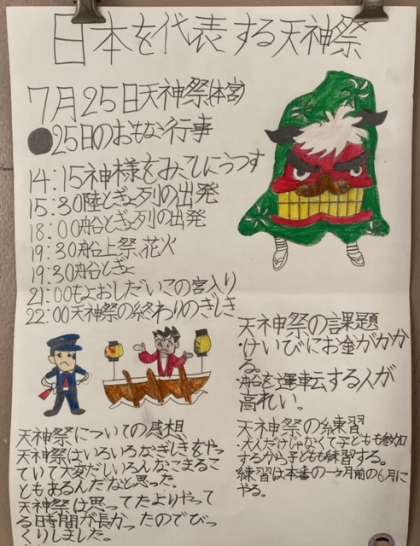 日本を代表する天神祭
7月25日天神祭(本宮)
●25日のおもな行事
14:15神様をみこしにうつす
15:30陸とぎょ列の出発
18:00船とぎょ列の出発
19:30船上祭、花火
19:30船とぎょ
21:00もよおしだいこの宮入り
22:00天神祭の終わりのぎしき
天神祭の課題
・けいびにお金がかか
る。
・船を運転する人が
高れい。
天神祭の練習
・大人だけじゃなくて子どもも参加
するから子どもも練習する。
練習は本番の一ヶ月前の6月に
やる。
天神祭についての感想
天神祭はいろいろなぎしきをやっ
ていて大変だしいろんなこまること
ともあるんだなと思った。
天神祭は思ってたよりやって
る日時間が長かったのでびっ
くりしました。